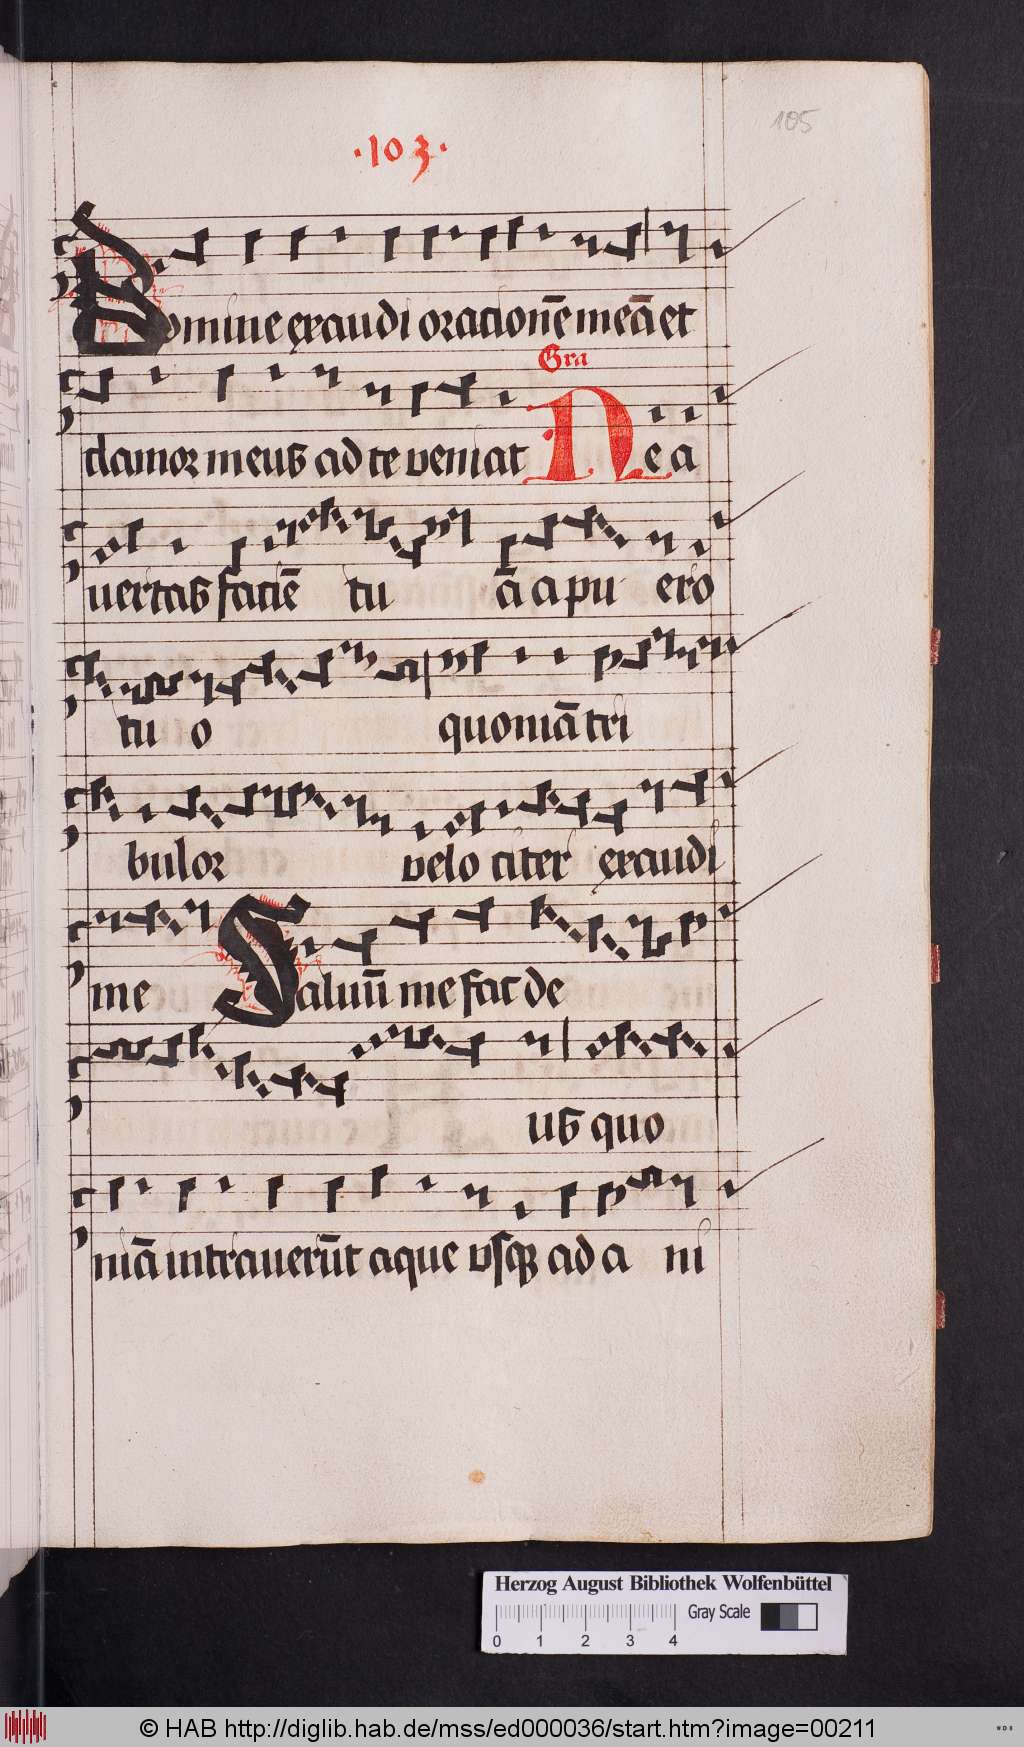 105
·103·
Domine exaudi oracionē meā et
Gra
clamor meus ad te veniat Ne a
uertas faciē tu ā a pu ero
tu o quoniā tri
bulor velociter exaudi
me Saluū me fac de
us quo
niā intrauerūt aque vsqꝫ ad a ni
Herzog August Bibliothek Wolfenbüttel
Gray Scale
0 1 2 3 4
© HAB http://diglib.hab.de/mss/ed000036/start.htm?image=00211